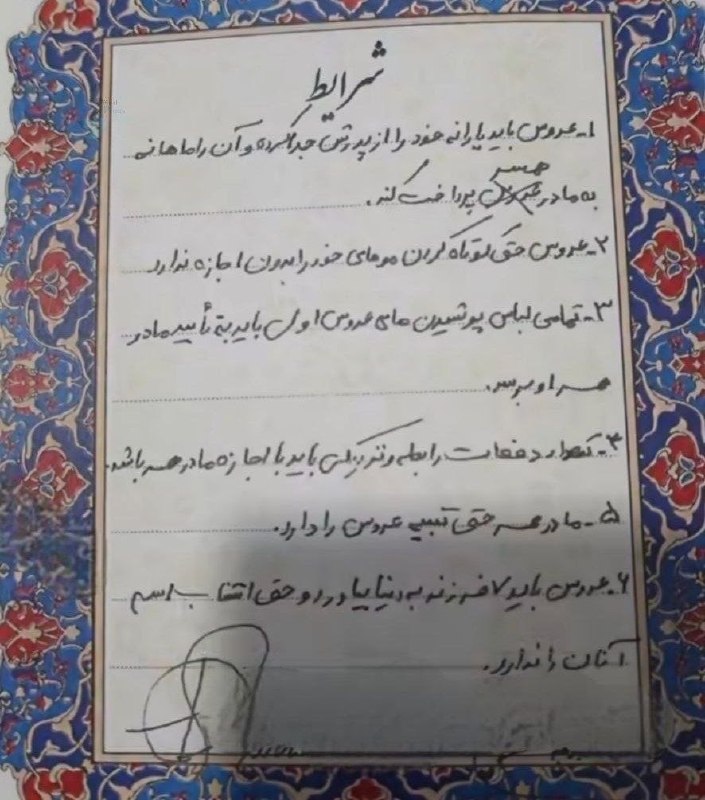 شرایط
۱- عروس باید یارانه خود را از پدرش جدا کرده و آن را ماهانه
همسر
به مادر پرداخت کند.
۲- عروس حق کوتاه کردن موهای خود را بدون اجازه ندارد
۳- تمامی لباس پوشیدن های عروس اولی باید به تأیید مادر
همسر او برسد.
۴- تعداد دفعات رابطه و نزدیکی باید با اجازه مادر همسر باشد.
۵- مادر همسر حق تنبیه عروس را دارد.
۶- عروس باید ۷ فرزند به دنیا بیاورد و حق انتخاب اسم
آنان را ندارد.